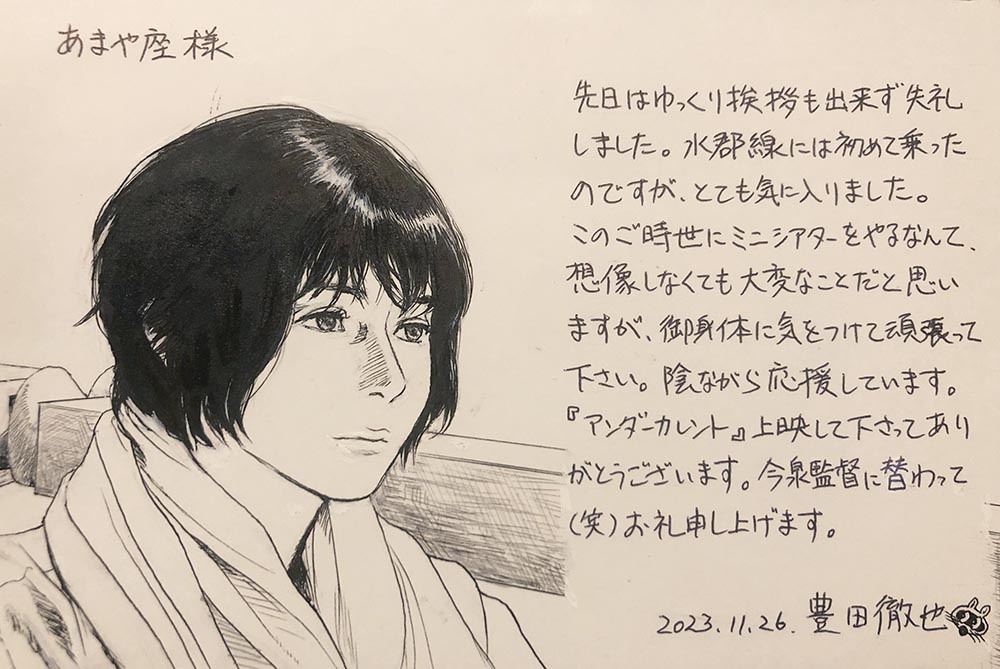 あまや座 様
先日はゆっくり挨拶も出来ず失礼
しました。水郡線には初めて乗った
のですが、とても気に入りました。
このご時世にミニシアターをやるなんて、
想像しなくても大変なことだと思い
ますが、御身体に気をつけて頑張って
下さい。陰ながら応援しています。
『アンダーカレント』上映して下さってあり
がとうございます。今泉監督に替わって
(笑)お礼申し上げます。
2023.11.26. 豊田徹也